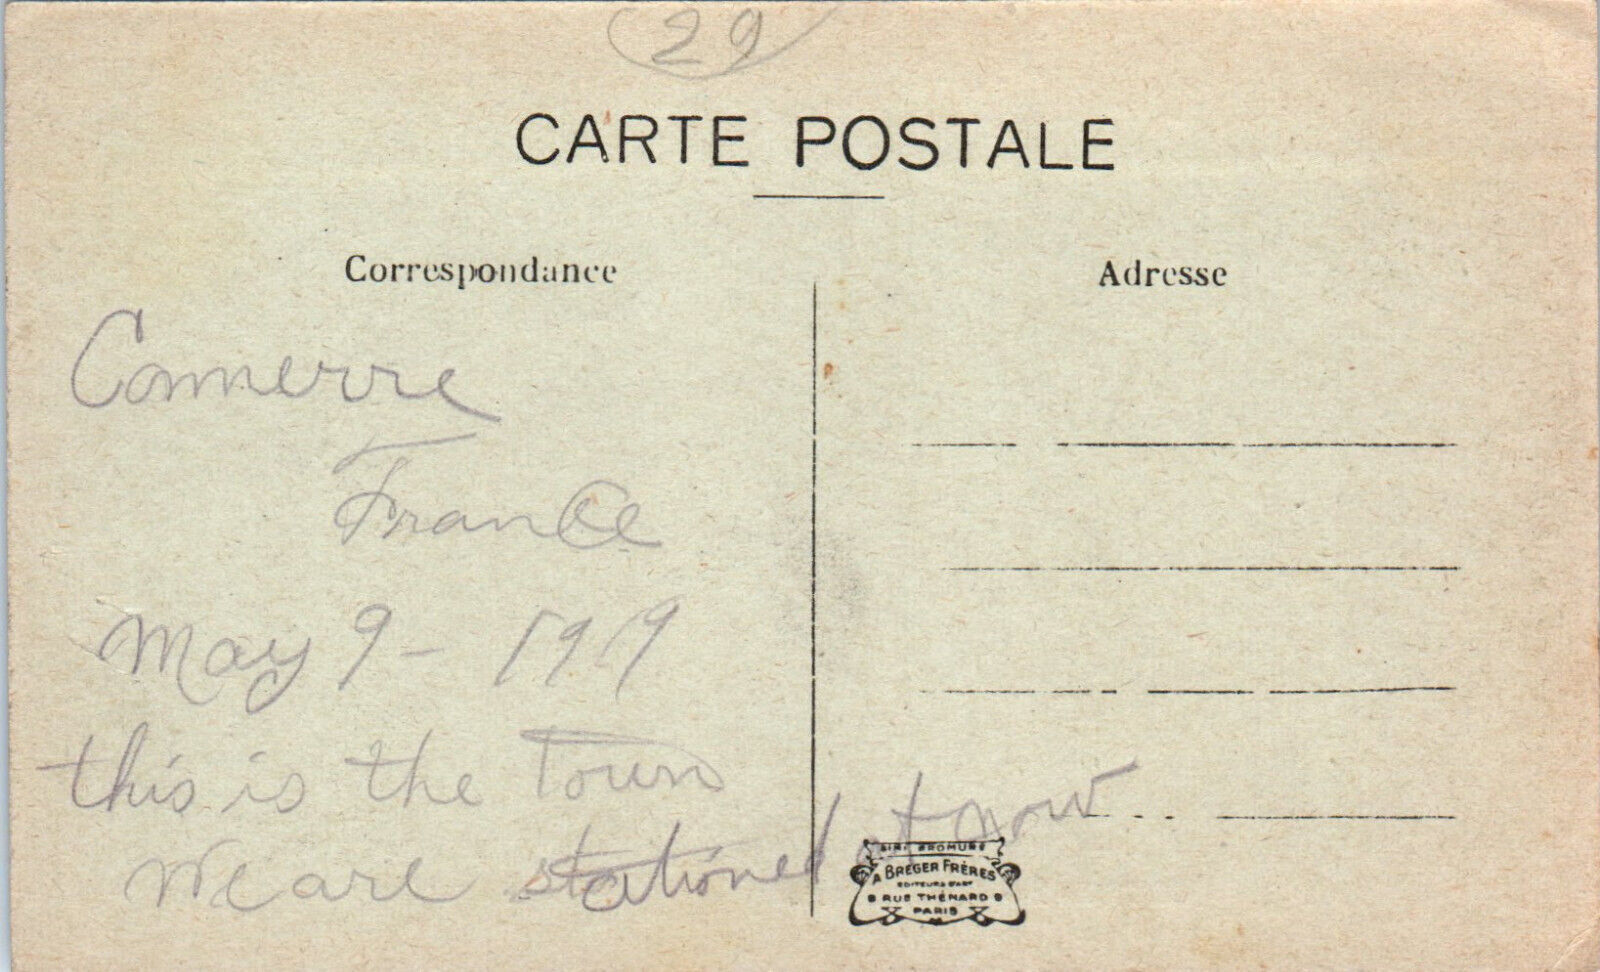 29
CARTE POSTALE
Correspondance
Adresse
Connerre
France
May 9 - 1919
this is the Town
We are stationed at now
SIMI BROMURE
A BREGER FRÈRES
EDITEURS D'ART
9 RUE THÉNARD 9
PARIS